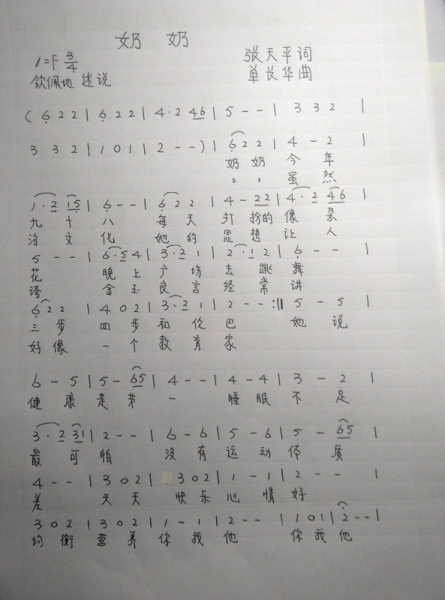 奶 奶
1=F 3/4 张天平词
钦佩地 述说 单长华曲
( 6 2 2 | 6 2 2 | 4 · 2 4 6 | 5 - - | 3 3 2 |
3 3 2 | 1 0 1 | 2 - - ) | 6 2 2 | 4 - 2 |
奶 奶 今 年
奶 奶 虽 然
1 · 2 1 5 | 6 - - | 6 2 2 | 4 - 2 2 | 4 · 2 4 6 |
九 十 八 每 天 打 扮的 像 朵
没 文 化 她 的 思 想 让 人
5 - - | 6 · 5 4 | 3 · 2 1 | 2 · 1 2 | 6 - - |
花 晚 上 广 场 去 跳 舞
夸 金 玉 良 言 经 常 讲
6 2 2 | 4 0 2 | 3 · 2 1 | 2 - - :|| 5 - 5 |
三 步 四 步 和 伦 巴 她 说
好 像 一 个 教 育 家
6 - 5 | 5 - 6 5 | 4 - - | 4 - 4 | 3 - 2 |
健 康 是 第 一 睡 眠 不 足
3 · 2 3 1 | 2 - - | 6 - 6 | 5 - 6 | 5 - 6 5 |
最 可 怕 没 有 运 动 体 质
4 - - | 3 0 2 | 3 0 2 | 1 - 1 | 2 - - |
差 天 天 快 乐 心 情 好
3 0 2 | 3 0 2 | 1 - 1 | 2 - - | 1 0 1 | 2 - - |
均 衡 营 养 你 我 他 你 我 他